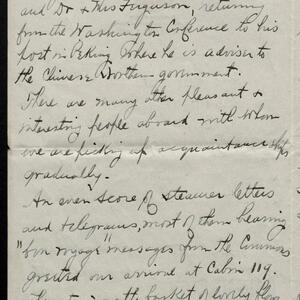 and Dr + Mrs Ferguson, returning
from the Washington Conference to his
post in Peking where he is adviser to
the Chinese Northern government.
There are many other pleasant +
interesting people aboard with whom
we are picking up acquaintanceships
gradually.
An even score of steamer letters
and telegrams, most of them bearing
"bon voyage" messages from the Commons
greeted our arrival at Cabin 119.
basket of lovely